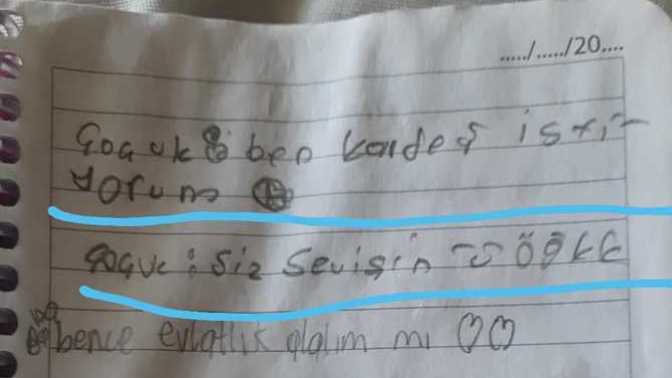 ...../...../20....
Çoauk: ben kardeş isti-
yorum
çoavc: Siz Sevişin
bence evlatlık alalım mı ♡♡